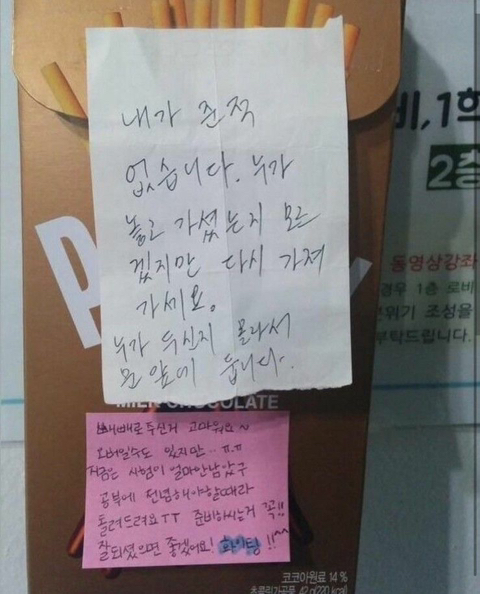 내가 준적
없습니다. 누가
놓고 가셨는지 모르
겠지만 다시 가져
가세요.
누가 두신지 몰라서
문 앞에 둡니다.
비, 1회
2층
동영상강좌
경우 1층 로비
분위기 조성을
부탁드립니다.
P
y
MILK CHOCOLATE
빼빼로 두신거 고마워요~
오버일수도 있지만.. ㅠ.ㅠ
지금은 시험이 얼마안남았구
공부에 전념해야할때라
돌려드려요ㅜㅜ 준비하시는거 꼭!!
잘되셨으면 좋겠어요! 화이팅!!^^
코코아원료 14%
초콜릿가공품 42g(220kcal)